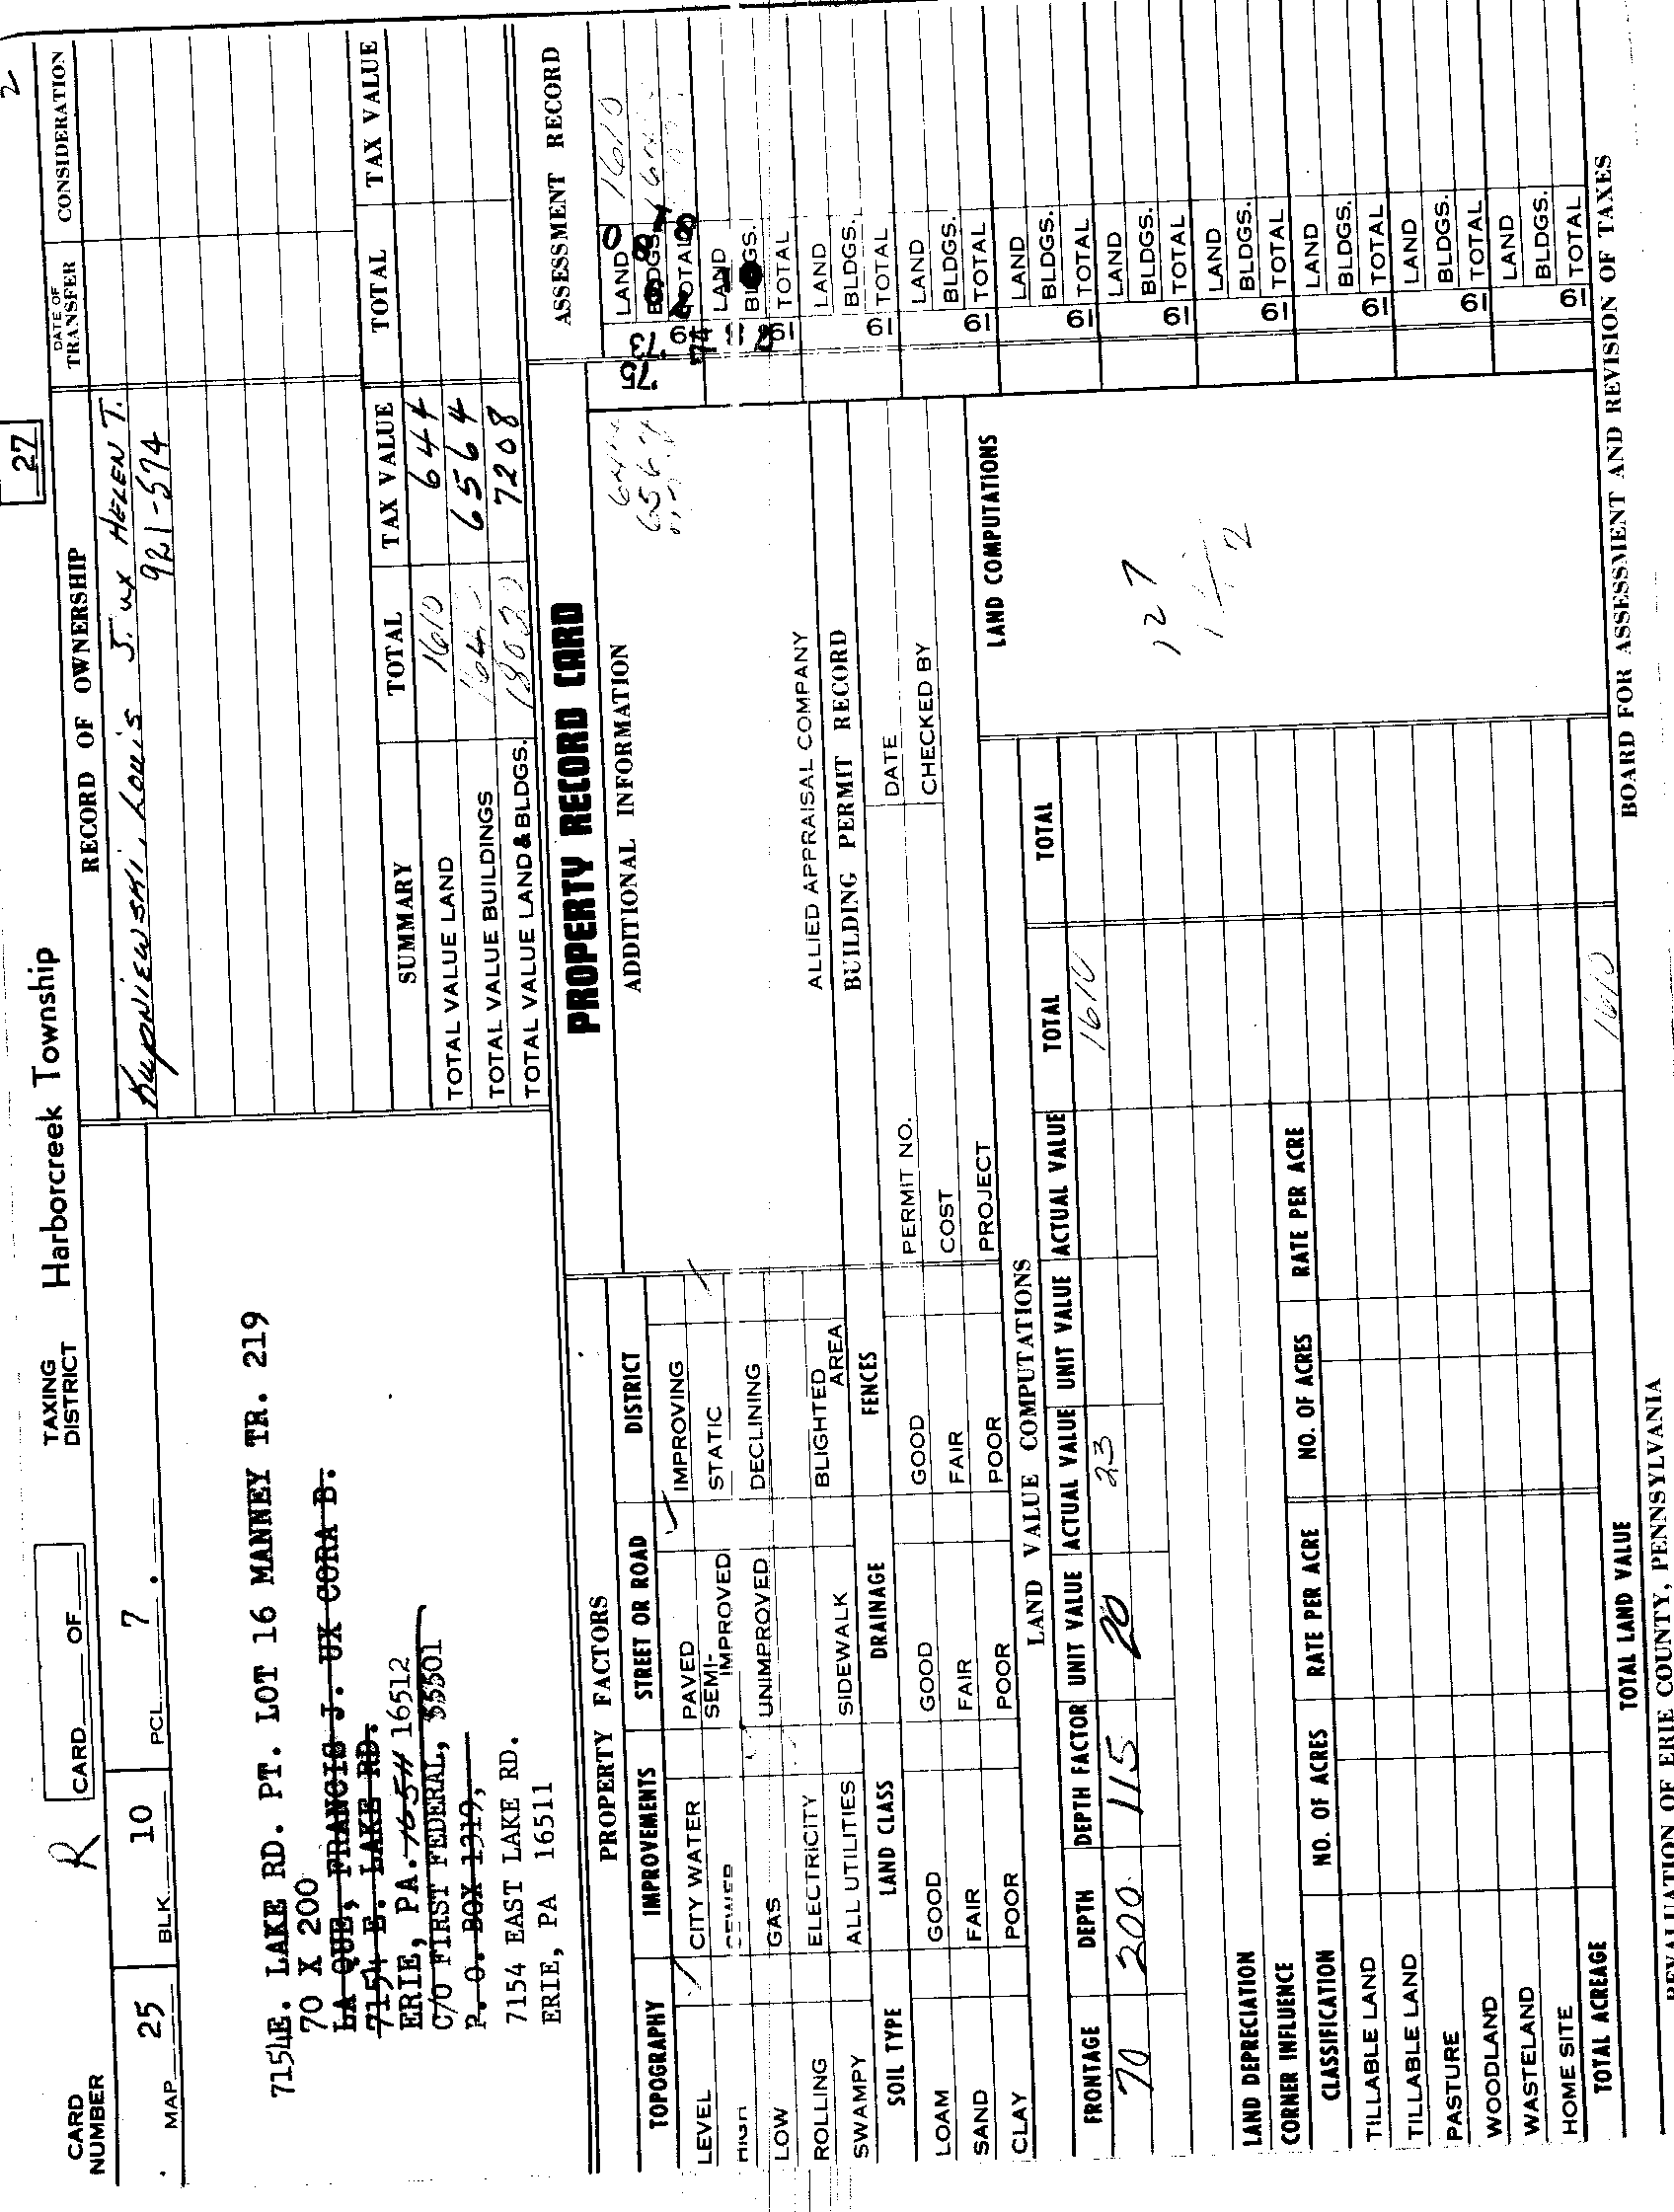 27
2
CARD NUMBER
R
CARD OF
TAXING DISTRICT Harborcreek Township
MAP 25 BLK. 10 PCL. 7
RECORD OF OWNERSHIP
DATE OF TRANSFER
CONSIDERATION
Kupniewski, Louis J. ux HELEN T.
921-574
7154 E. LAKE RD. PT. LOT 16 MANNEY TR. 219
70 X 200
LA QUE, FRANCIS J. UX CORA B.
7154 E. LAKE RD.
ERIE, PA. 16511 16512
C/O FIRST FEDERAL,
P. O. BOX 1319,
7154 EAST LAKE RD.
ERIE, PA 16511
SUMMARY TOTAL TAX VALUE TOTAL TAX VALUE
TOTAL VALUE LAND 1610 644
TOTAL VALUE BUILDINGS 6564
TOTAL VALUE LAND & BLDGS. 7208
PROPERTY RECORD CARD
PROPERTY FACTORS
TOPOGRAPHY IMPROVEMENTS STREET OR ROAD DISTRICT
LEVEL CITY WATER PAVED IMPROVING
HIGH SEWER SEMI-IMPROVED STATIC
LOW GAS UNIMPROVED DECLINING
ROLLING ELECTRICITY BLIGHTED AREA
SWAMPY ALL UTILITIES SIDEWALK
SOIL TYPE LAND CLASS DRAINAGE FENCES
LOAM GOOD GOOD GOOD
SAND FAIR FAIR FAIR
CLAY POOR POOR POOR
ADDITIONAL INFORMATION
ALLIED APPRAISAL COMPANY
BUILDING PERMIT RECORD
PERMIT NO. DATE
COST CHECKED BY
PROJECT
ASSESSMENT RECORD
'75
'73
LAND 1610
BLDGS.
19 TOTAL
'74
LAND
BLDGS.
19 TOTAL
LAND
BLDGS.
19 TOTAL
LAND
BLDGS.
19 TOTAL
LAND
BLDGS.
19 TOTAL
LAND
BLDGS.
19 TOTAL
LAND
BLDGS.
19 TOTAL
LAND
BLDGS.
19 TOTAL
LAND
BLDGS.
19 TOTAL
LAND
BLDGS.
19 TOTAL
LAND VALUE COMPUTATIONS
FRONTAGE DEPTH DEPTH FACTOR UNIT VALUE ACTUAL VALUE UNIT VALUE ACTUAL VALUE TOTAL TOTAL
70 200 115 20 23 1610
LAND COMPUTATIONS
127
LAND DEPRECIATION
CORNER INFLUENCE
CLASSIFICATION NO. OF ACRES RATE PER ACRE NO. OF ACRES RATE PER ACRE
TILLABLE LAND
TILLABLE LAND
PASTURE
WOODLAND
WASTELAND
HOME SITE
TOTAL ACREAGE TOTAL LAND VALUE 1610
REVALUATION OF ERIE COUNTY, PENNSYLVANIA BOARD FOR ASSESSMENT AND REVISION OF TAXES